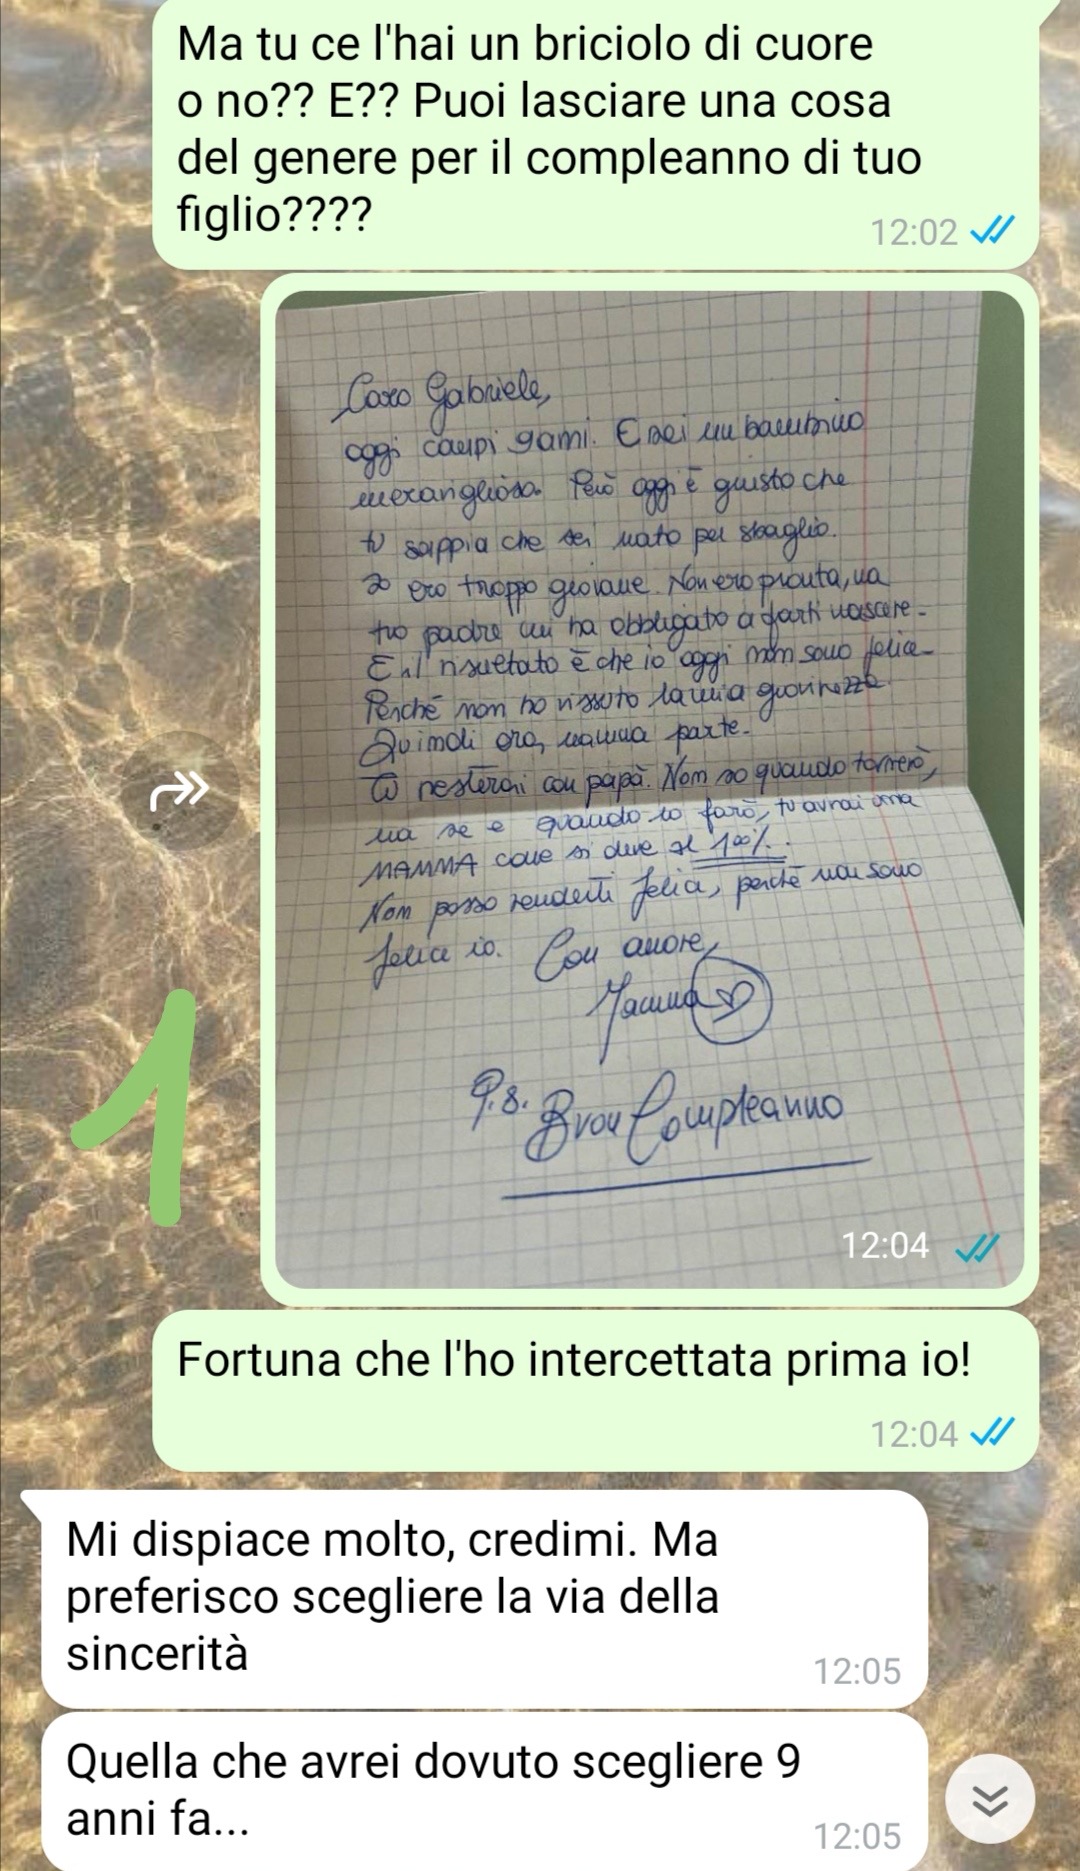 Ma tu ce l'hai un briciolo di cuore
o no?? E?? Puoi lasciare una cosa
del genere per il compleanno di tuo
figlio????
12:02
Caro Gabriele,
oggi compi 9 anni. E sei un bambino
meraviglioso. Però oggi è giusto che
tu sappia che sei nato per sbaglio.
Io ero troppo giovane. Non ero pronta, ma
tuo padre mi ha obbligato a farti nascere.
E il risultato è che io oggi non sono felice.
Perché non ho vissuto la mia giovinezza.
Quindi ora, mamma parte.
Tu resterai con papà. Non so quando tornerò,
ma se e quando lo farò, tu avrai una
MAMMA come si deve al 100%.
Non posso renderti felice, perché non sono
felice io. Con amore,
Mamma
P.S. Buon Compleanno
12:04
1
Fortuna che l'ho intercettata prima io!
12:04
Mi dispiace molto, credimi. Ma
preferisco scegliere la via della
sincerità
12:05
Quella che avrei dovuto scegliere 9
anni fa...
12:05